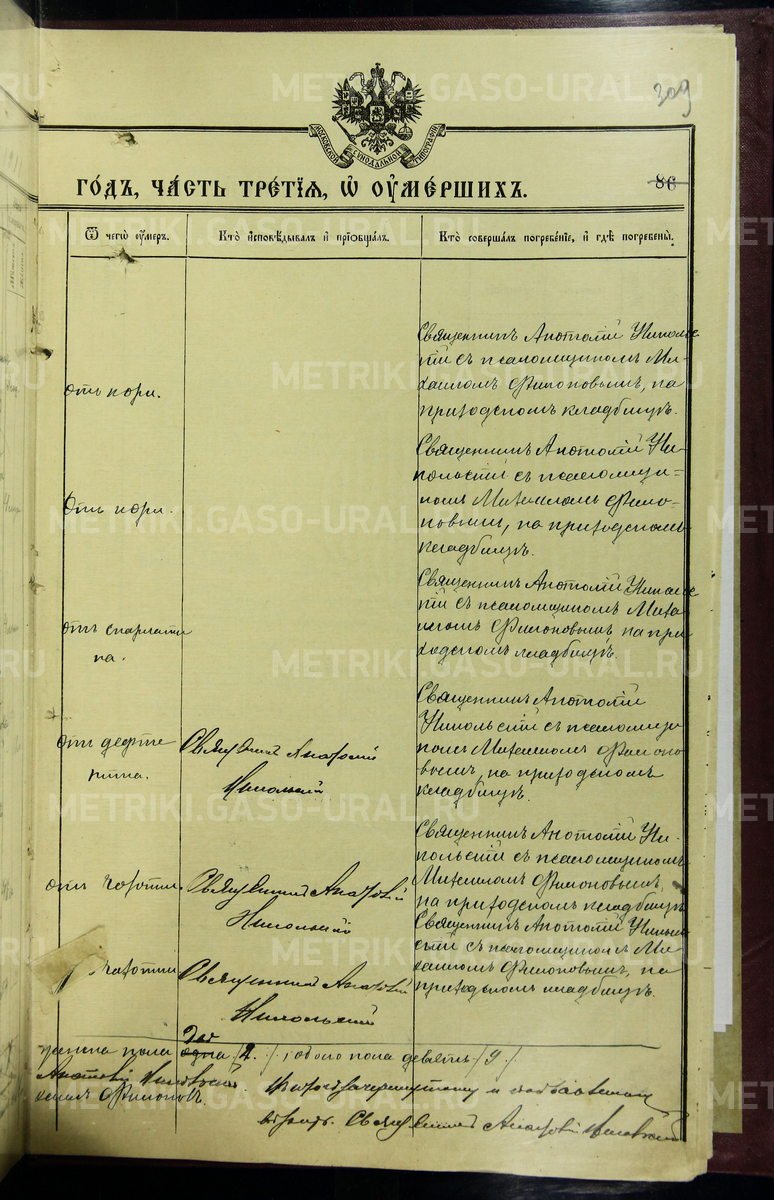 309
МОСКОВСКОЙ СѴНОДАЛЬНОЙ ТИПОГРАФІИ
ГО́ДЪ, ЧА́СТЬ ТРЕ́ТІЯ, Ѡ҆ ОУ҆МЕ́РШИХЪ.
86
Ѿ чегѡ̀ оу҆́меръ.
Кто̀ и҆сповѣ́дывалъ и҆ прїѡбща́лъ.
Кто̀ соверша́лъ погребе́нїе, и҆ гдѣ̀ погребены̀.
отъ кори.
Священникъ Анатолій Николь
кій съ псаломщикомъ Ми-
хаиломъ Филоновымъ, на
приходскомъ кладбищѣ.
Отъ кори.
Священникъ Анатолій Ни-
кольскій съ псаломщи-
комъ Михаиломъ Фило-
новымъ, на приходскомъ
кладбищѣ.
отъ скарлати
на.
Священникъ Анатолій Никольс
кій съ псаломщикомъ Миха
иломъ Филоновымъ на при
ходскомъ кладбищѣ.
отъ дефте
рита.
Священникъ Анатолій
Никольскій
Священникъ Анатолій
Никольскій съ псаломщи
комъ Михаиломъ Филоно
вымъ, на приходскомъ
кладбищѣ.
отъ чахотки.
Священникъ Анатолій
Никольскій
Священникъ Анатолій Ни-
кольскій съ псаломщикомъ
Михаиломъ Филоновымъ,
на приходскомъ кладбищѣ
чахотки
Священникъ Анатолій
Никольскій
Священникъ Анатолій Николь
скій съ псаломщикомъ Ми
хаиломъ Филоновымъ, на
приходскомъ кладбищѣ.
две
женска пола одна /2./, обоего пола девять /9/
Анатолій Никольскій
Филоновъ.
Священникъ Анатолій Никольскій
METRIKI.GASO-URAL.RU